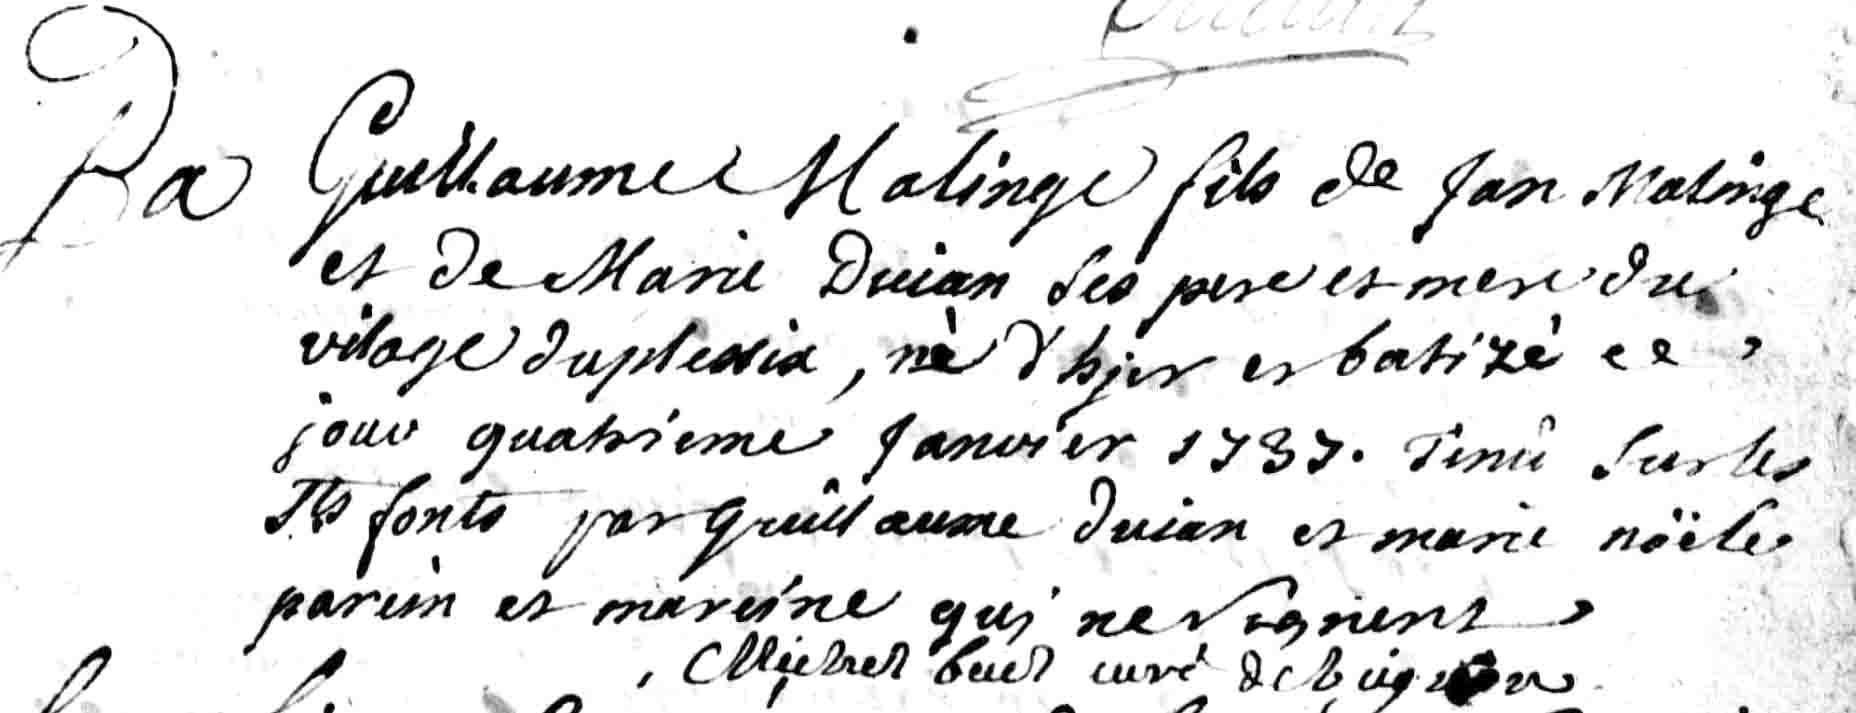 Ba Guillaume Malinge fils de Jan Malinge
et de Marie Duian ses pere et mere du
vilage duplessix, nè d'hjer et batizé ce
jour quatrieme Janvier 1737. Tenû sur les
Sts fonts par Guillaume duian et marie nöële
parein et mareine qui ne signent
Michel buet curé de